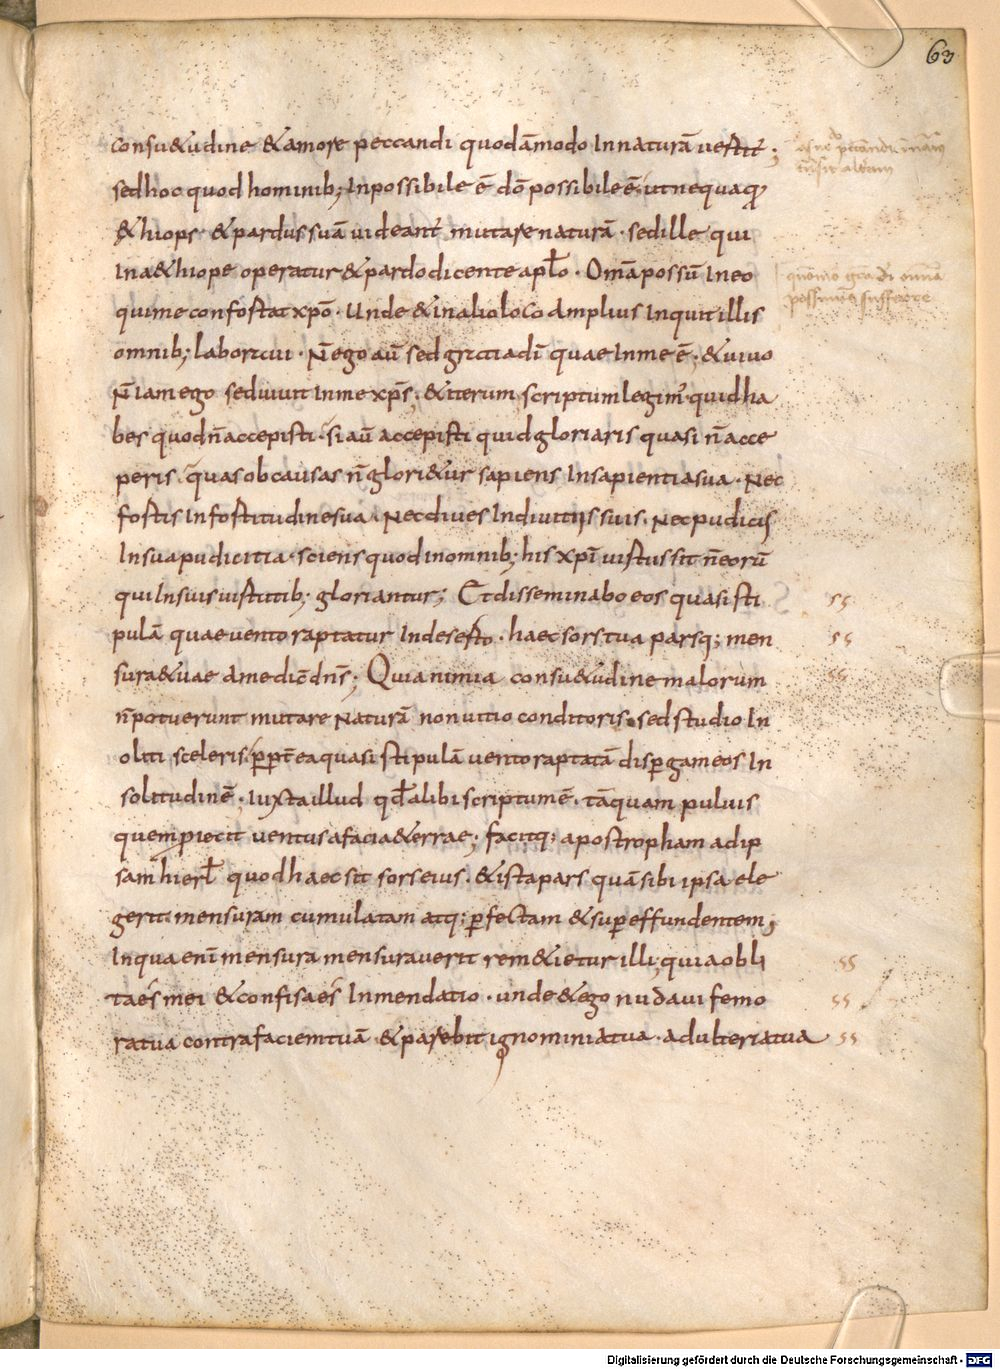 63
consu&udine &amore peccandi quodāmodo Innaturā uertit;
sedhoc quod hominib; Inpossibile ē dō possibile ē. utnequaqꝫ
&hiops· &pardus suā uideant mutare naturā· sedille qui
Ina&hiope operatur &pardo dicente apłō· Oma possū Ineo
quime confortat xpō· Unde &inalioloco Amplius Inquit illis
omnib; laboraui· N̄ ego aū sed gratia dī quae Inme ē; &uiuo
N̄ Iam ego sed uiuit Inme xps̄; &iterum scriptum legim᾽ quid ha
bes quod n̄ accepisti· si aū accepisti quid gloriaris quasi n̄ acce
peris· quas ob causas n̄ glori&ur sapiens Insapientia sua· Nec
fortis Infortitudine sua· Nec diues Indiuitiis suis· Nec pudicus
Insua pudicitia· sciens quod inomnib; his xpī uirtus sit n̄ eorū
qui Insuis uirtutib; gloriantur; Et disseminabo eos quasi sti
pulā quae uento raptatur Indeserto· haec sors tua parsq; men
sura&uae Ame dicē dns̄; Quia nimia consu&udine malorum
n̄ potuerunt mutare Naturā non uitio conditoris· sed studio In
oliti sceleris ꝑpt̄ea quasi stipulā uento raptatā disꝑgam eos In
solitudinē· Iuxta illud qd̄ alibi scriptum ē· tāquam puluis
quem ꝓiecit uentus afacia&errae; facitq; apostropham ad ip
sam hierł quod haec sit sors eius· &ista pars quā sibi ipsa ele
gerit mensuram cumulatam atq; ꝑfectam &suꝑeffundentem;
Inqua enī mensura mensurauerit rem&ietur illi; quia obli
ta es mei &confisa es Inmendatio· unde &ego nudaui femo
ra tua contra faciem tuā &parebit ignominia tua· adulteria tua
ss
ss
ss
ss
ss
ss
Digitalisierung gefördert durch die Deutsche Forschungsgemeinschaft - DFG